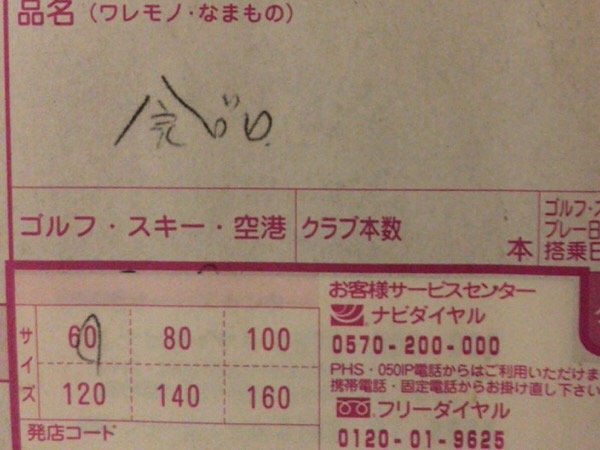 品名(ワレモノ・なまもの)
ゴルフ・スキー・空港
クラブ本数
本
ゴルフ・ス
プレー日
搭乗日
サイズ
60 80 100
120 140 160
発店コード
お客様サービスセンター
ナビダイヤル
0570-200-000
PHS・050IP電話からはご利用いただけま
携帯電話・固定電話からお掛け直し下さい
フリーダイヤル
0120-01-9625